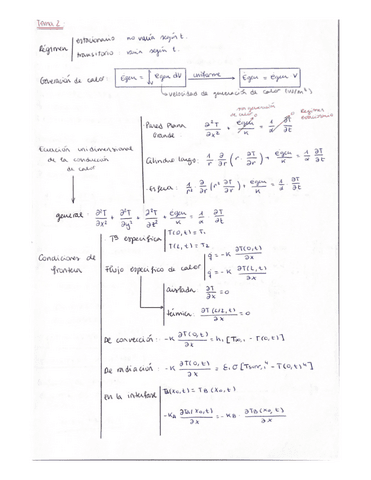 Tema 2
Régimen
estacionario no varía según t.
transitorio varía según t.
Generación de calor:
Egen = ∫ egen dV
uniforme
Egen = egen V
velocidad de generación de calor (W/m³)
sin generación de calor
Régimen estacionario
Ecuación unidimensional de la conducción de calor
Pared Plana Grande
∂²T/∂x² + egen/K = 1/α ∂T/∂t
Cilindro largo: 1/r ∂/∂r (r · ∂T/∂r) + egen/K = 1/α ∂T/∂t
Esfera: 1/r² ∂/∂r (r² ∂T/∂r) + egen/K = 1/α ∂T/∂t
general: ∂²T/∂x² + ∂²T/∂y² + ∂²T/∂z² + egen/K = 1/α ∂T/∂t
Condiciones de frontera
Tª específica
T(0,t) = T₁
T(L,t) = T₂
Flujo específico de calor
q = -K ∂T(0,t)/∂x
q = -K ∂T(L,t)/∂x
aislada: ∂T/∂x = 0
térmica: ∂T(L/2,t)/∂x = 0
De convección: -K ∂T(0,t)/∂x = h₁ [T∞₁ - T(0,t)]
De radiación: -K ∂T(0,t)/∂x = ε₁ σ [Tsurr,₁⁴ - T(0,t)⁴]
en la interfase
TA(x₀,t) = TB(x₀,t)
-KA ∂TA(x₀,t)/∂x = -KB · ∂TB(x₀,t)/∂x